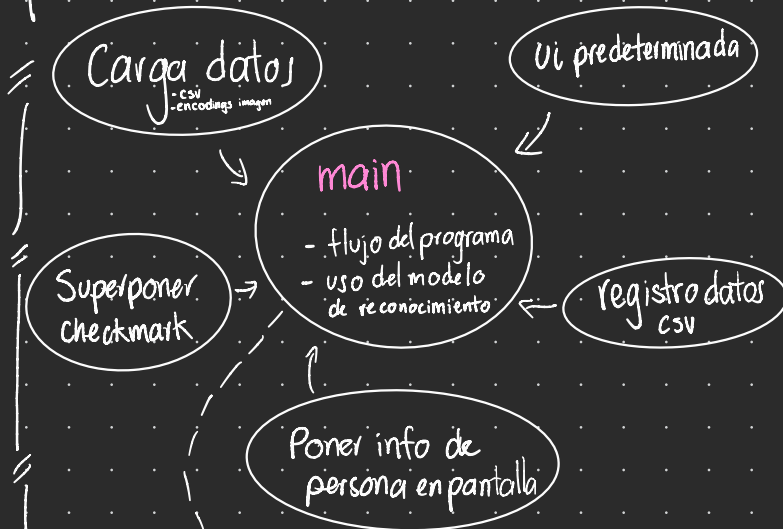 Carga datos
- csv
- encodings imagen
Ui predeterminada
main
- flujo del programa
- uso del modelo
de reconocimiento
Superponer
checkmark
registro datos
csv
Poner info de
persona en pantalla